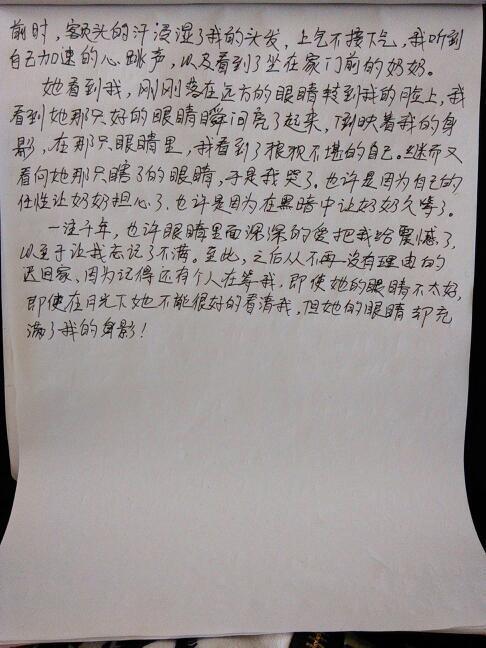 前时，额头的汗浸湿了我的头发，上气不接下气，我听到
自己加速的心跳声，以及看到了坐在家门前的奶奶。
她看到我，刚刚落在远方的眼睛转到我的脸上，我
看到她那只好的眼睛瞬间亮了起来，倒映着我的身
影，在那只眼睛里，我看到了狼狈不堪的自己。继而又
看向她那只瞎了的眼睛，于是我哭了。也许是因为自己的
任性让奶奶担心了，也许是因为在黑暗中让奶奶久等了。
一注千年，也许眼睛里面深深的爱把我给震憾了，
以至于让我忘记了不满。至此，之后从不再没有理由的
迟回家，因为记得还有个人在等我，即使她的眼睛不太好，
即使在月光下她不能很好的看清我，但她的眼睛却充
满了我的身影！